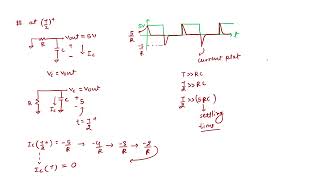 at (T/2)+
Vout = 5V
R
C
Ic
Vc = Vout
Vc = Vout
R
C
5
Ic
t = T/2+
Ic(T/2+) = -5/R → -4/R → -3/R → -2/R
Ic(T) = 0
5V
5/R
-5/R
t
current plot
T >> RC
T/2 >> RC
T/2 >> (5RC)
settling
time